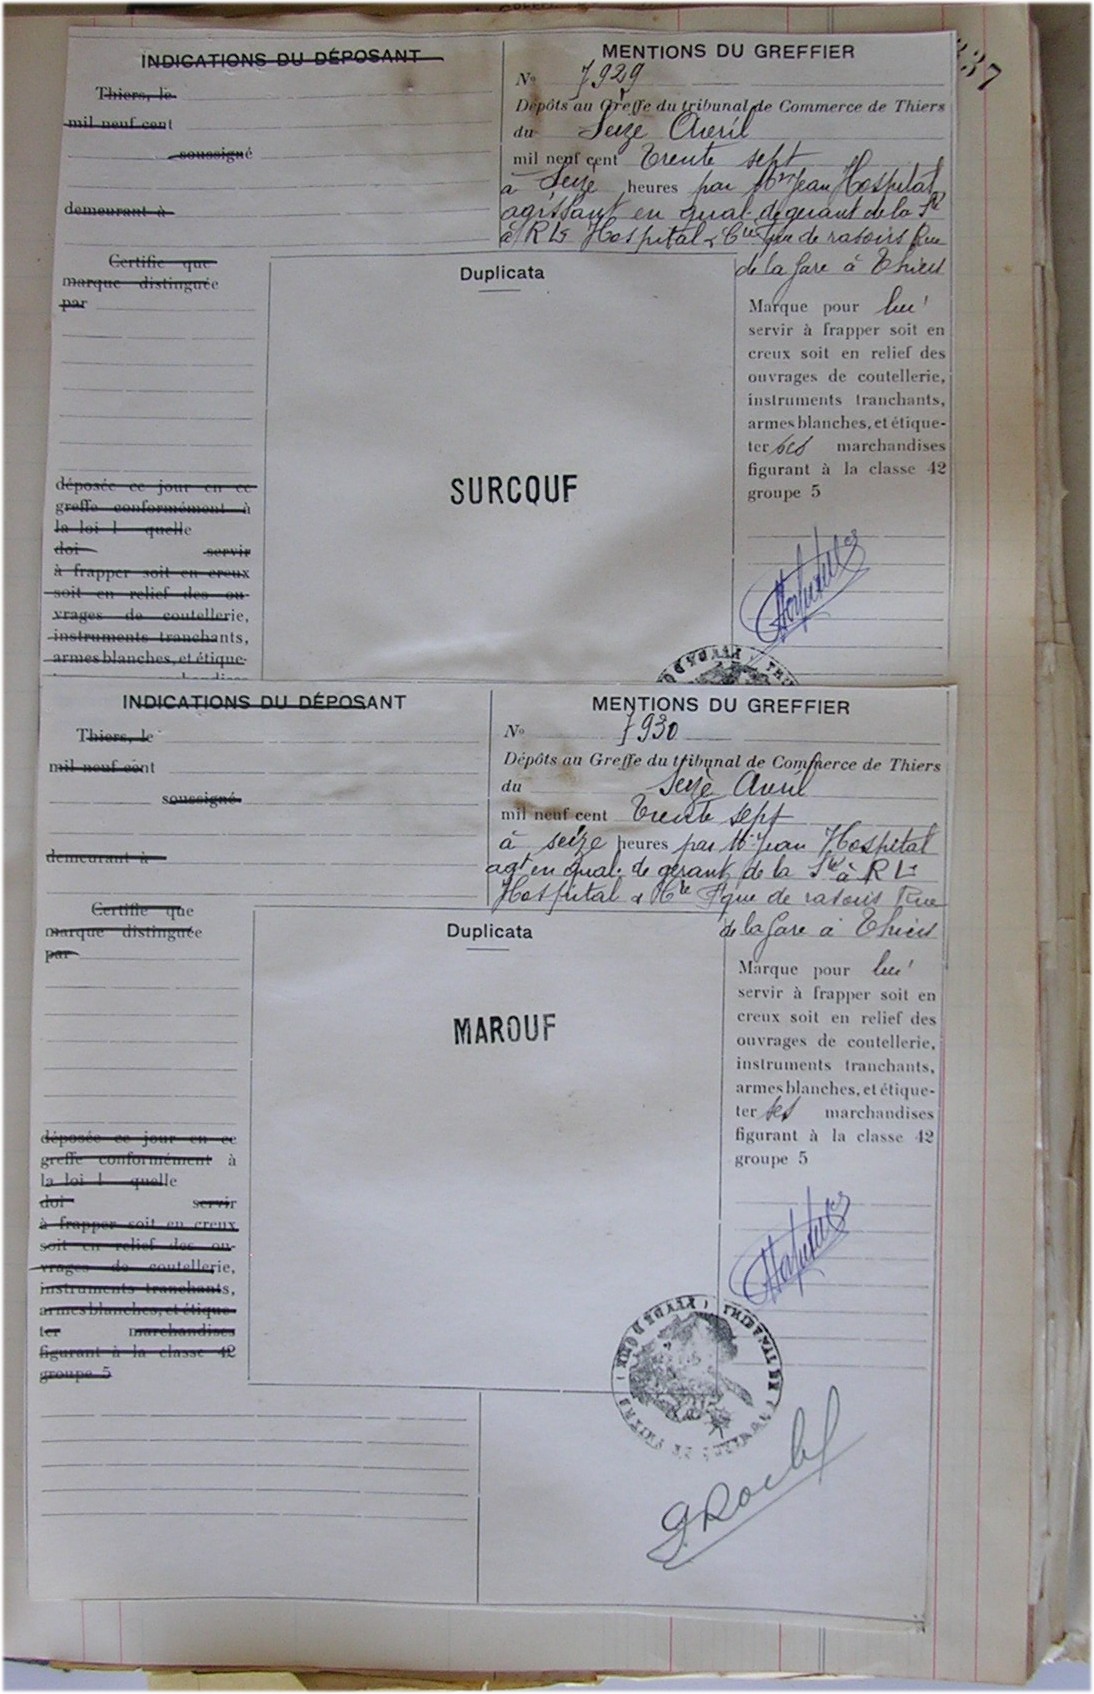 INDICATIONS DU DÉPOSANT
Thiers, le
mil neuf cent
soussigné
demeurant à
Certifie que
marque distinguée
par
déposée ce jour en ce
greffe conformément à
la loi l quelle
doi servir
à frapper soit en creux
soit en relief des ou-
vrages de coutellerie,
instruments tranchants,
armes blanches, et étique-
MENTIONS DU GREFFIER
37
No 7929
Dépôts au Greffe du tribunal de Commerce de Thiers
du Seize Avril
mil neuf cent Trente sept
à Seize heures par Mr Jean Hospital
agissant en qual. de gérant de la Sté
à R Lé Hospital & Cie fque de rasoirs Rue
de la Gare à Thiers
Duplicata
SURCOUF
Marque pour lui
servir à frapper soit en
creux soit en relief des
ouvrages de coutellerie,
instruments tranchants,
armes blanches, et étique-
ter ses marchandises
figurant à la classe 42
groupe 5
Hospital
INDICATIONS DU DÉPOSANT
Thiers, le
mil neuf cent
soussigné
demeurant à
Certifie que
marque distinguée
par
déposée ce jour en ce
greffe conformément à
la loi l quelle
doi servir
à frapper soit en creux
soit en relief des ou-
vrages de coutellerie,
instruments tranchants,
armes blanches, et étique-
ter marchandises
figurant à la classe 42
groupe 5
MENTIONS DU GREFFIER
No 7930
Dépôts au Greffe du tribunal de Commerce de Thiers
du Seize Avril
mil neuf cent Trente sept
à seize heures par Mr Jean Hospital
agt en qual. de gérant de la Sté à R Lé
Hospital & Cie fque de rasoirs Rue
de la Gare à Thiers
Duplicata
MAROUF
Marque pour lui
servir à frapper soit en
creux soit en relief des
ouvrages de coutellerie,
instruments tranchants,
armes blanches, et étique-
ter ses marchandises
figurant à la classe 42
groupe 5
Hospital
TRIBUNAL DE COMMERCE DE THIERS (PUY DE DOME)